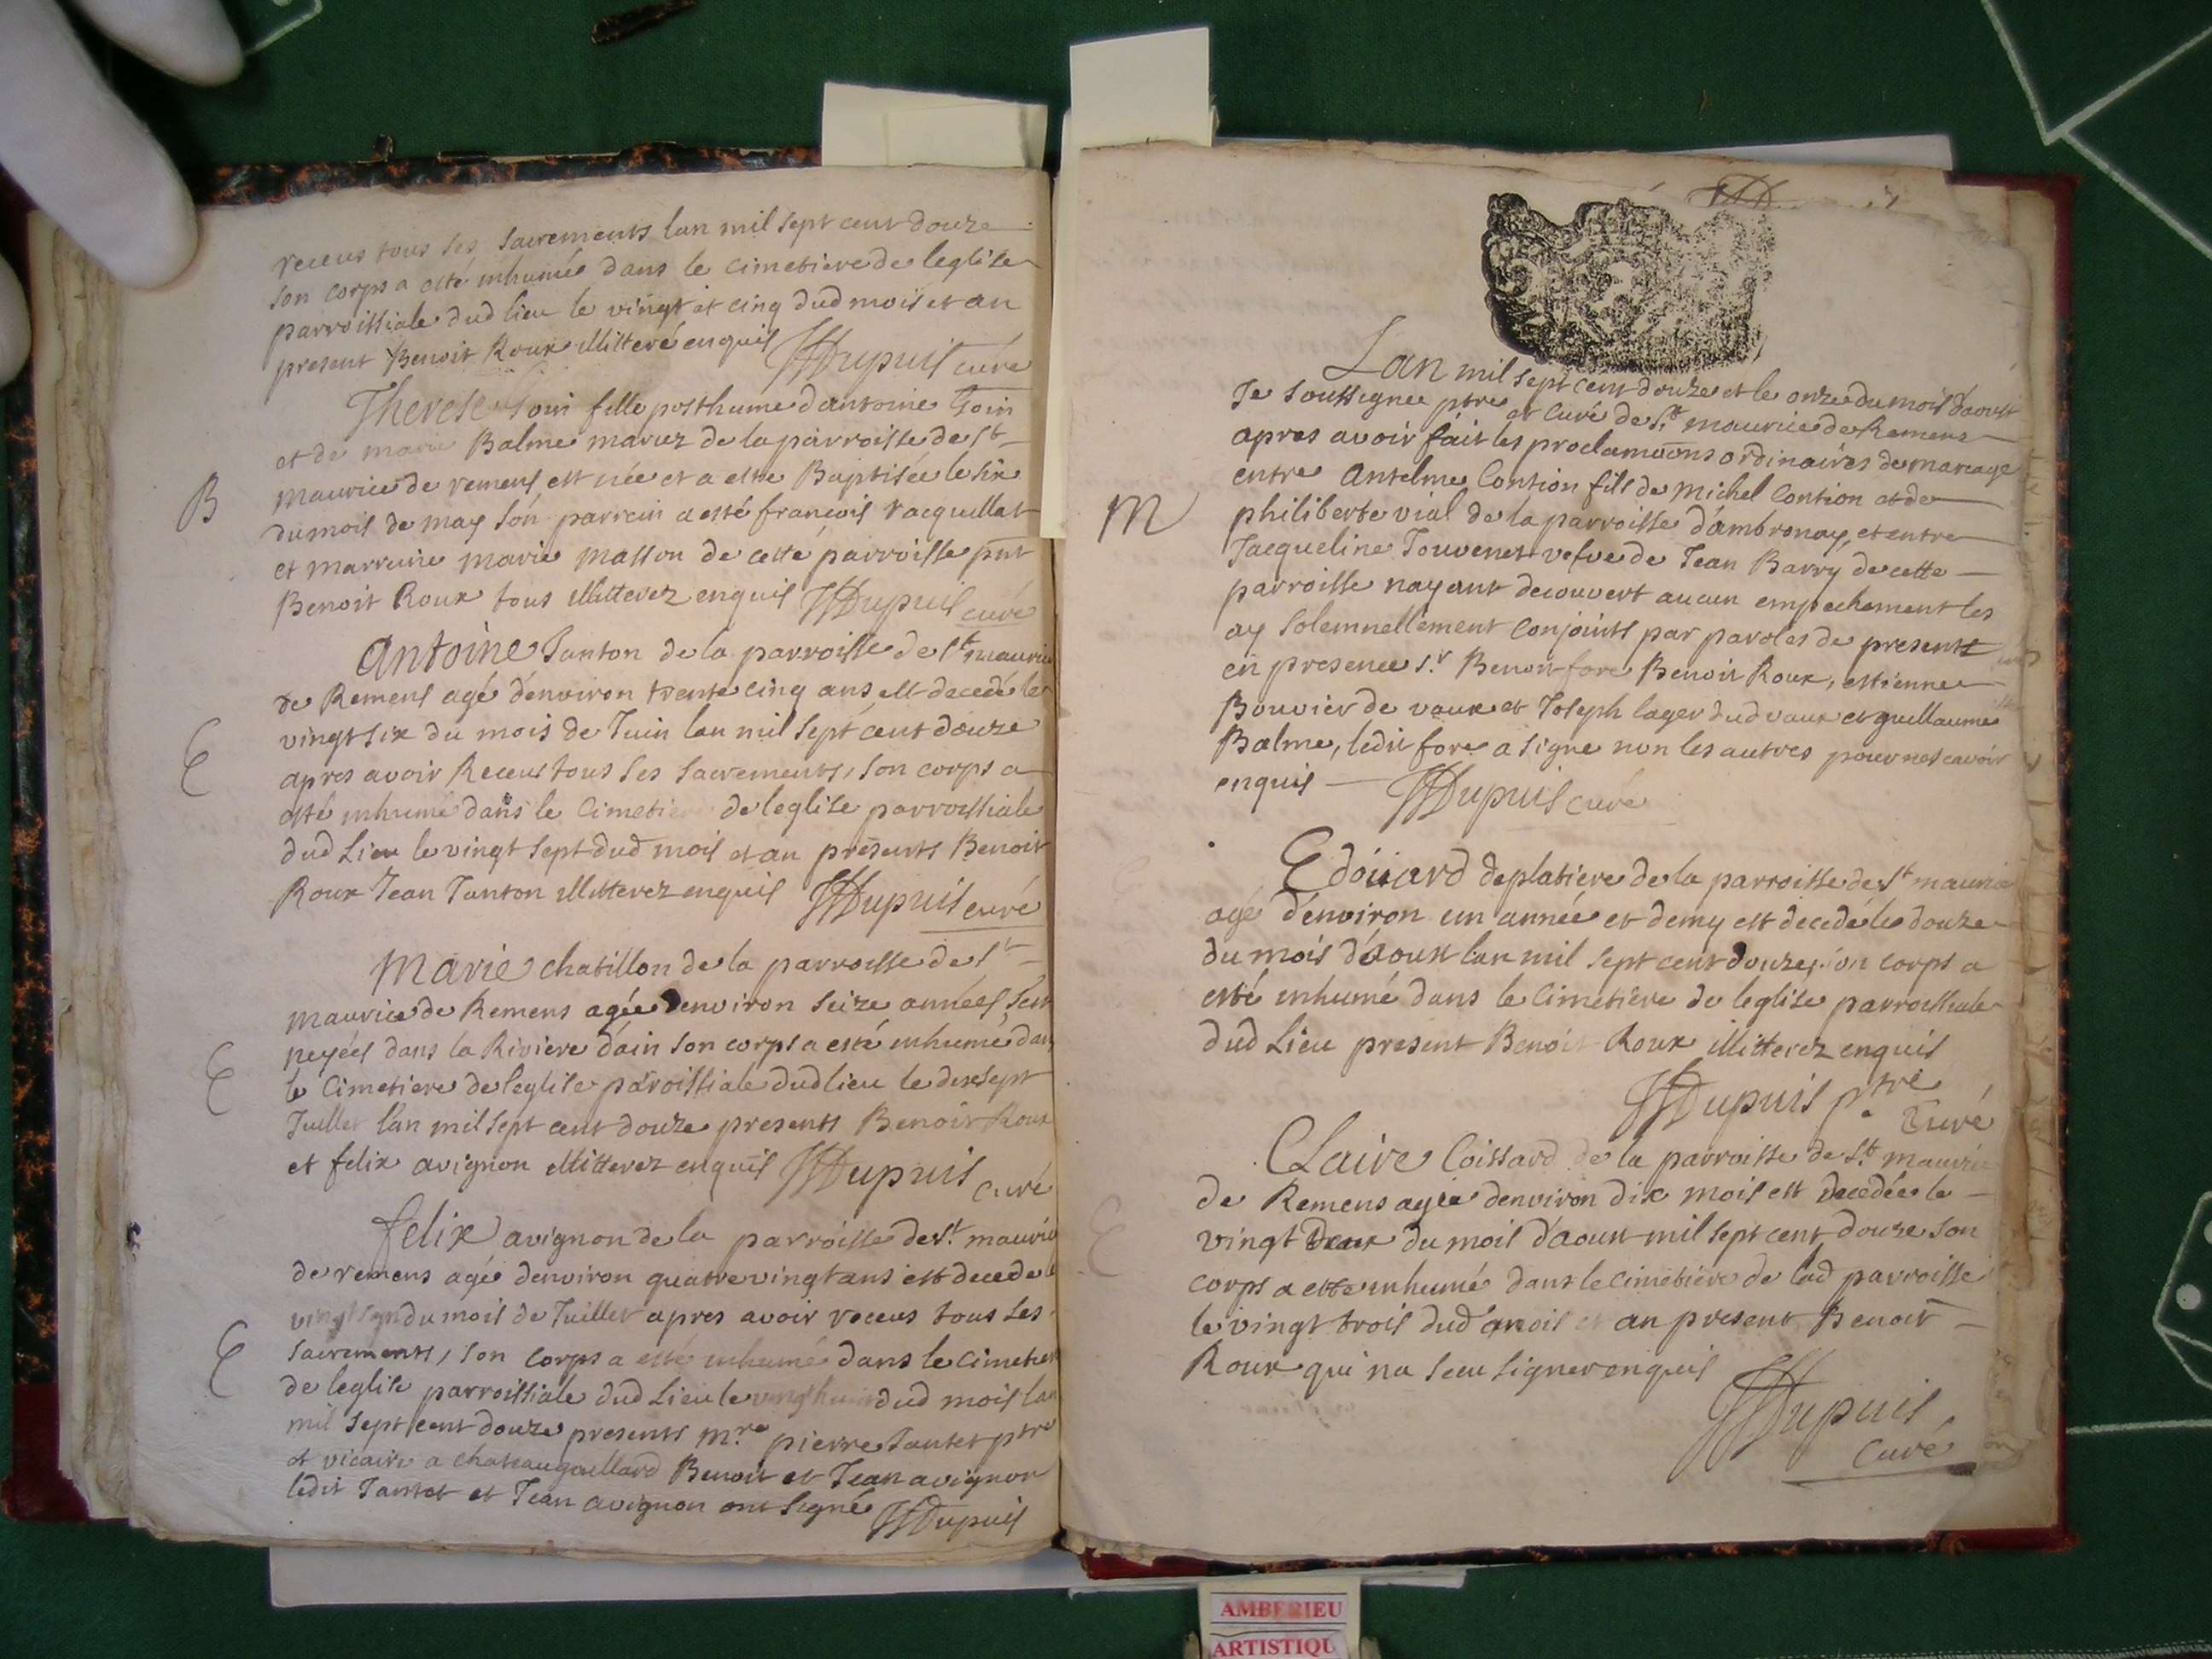 receus tous ses sacrements lan mil sept cent douze
son corps a esté inhumé dans le cimetiere de leglise
parroissiale dud lieu le vingt et cinq dud mois et an
present Benoit Roux illitteré enquis Dupuis curé
Therese Goin fille posthume dantoine Goin
et de marie Balme mariez de la parroisse de st
B
maurice de remens est née et a esté Baptisée le six
du mois de may son parrein a esté francois Vacquillat
et marreine marie masson de cette parroisse pnt
Benoit Roux tous illitterez enquis Dupuis curé
Antoine Janton de la parroisse de st maurice
de Remens agé denviron trente cinq ans est decedé le
E
vingt six du mois de Juin lan mil sept cent douze
apres avoir Receus tous ses sacrements, son corps a
esté inhumé dans le Cimetiere de leglise parroissiale
dud Lieu le vingt sept dud mois et an présents Benoit
Roux Jean Janton illitterez enquis Dupuis curé
Marie chatillon de la parroisse de st
maurice de Remens agée denviron seize années sest
neyéés dans la Riviere dain son corps a esté inhumé dans
E
le Cimetiere de leglise paroissiale dud lieu le dixsept
Juillet lan mil sept cent douze presents Benoit Roux
et felix avignon illitterez enquis Dupuis curé
felix avignon de la parroisse de st. maurice
de remens agée denviron quatre vingt ans est decedé le
vingt sept du mois de Juillet apres avoir receus tous ses
E
sacrements, son corps a esté inhumé dans le cimetiere
de leglise parroissiale dud Lieu le vingt huit dud mois lan
mil sept cent douze presents mre pierre Jantet ptre
et vicaire a chateaugaillard Benoit et Jean avignon
ledit Jantet et Jean avignon ont signé Dupuis
Lan mil sept cent douze et le onze du mois d'aoust
Je soussignée ptre et curé de st. maurice de Remens
apres avoir fait les proclamaons ordinaires de mariage
entre Antelme Contion fils de Michel Contion et de
M
philiberte vial de la parroisse d'ambronay, et entre
Jacqueline Jouvenet vefve de Jean Barry de cette
parroisse nayant decouvert aucun empechement les
ay solemnellement conjoints par paroles de present
en presence sr. Benoit fore Benoit Roux, estienne
Bouvier de vaux et Joseph lager dud vaux et guillaume
Balme, ledit fore a signe non les autres pour ne scavoir
enquis Dupuis curé
Edoüard deplatiere de la parroisse de st maurice
agé d'environ un année et demy est decedé le douze
du mois d'aoust lan mil sept cent douze, son corps a
esté inhumé dans le Cimetiere de leglise parroissiale
dud Lieu present Benoit Roux illitterez enquis
Dupuis ptre
Curé
Claire Coissard de la parroisse de st. maurice
de Remens agée denviron dix mois est decedée le
E
vingt Deux du mois d'aoust mil sept cent douze son
corps a esté inhumé dans le cimetiere de lad parroisse
le vingt trois dud mois et an present Benoit
Roux qui na sceu signer enquis
Dupuis
Curé
AMBERIEU
ARTISTIQU